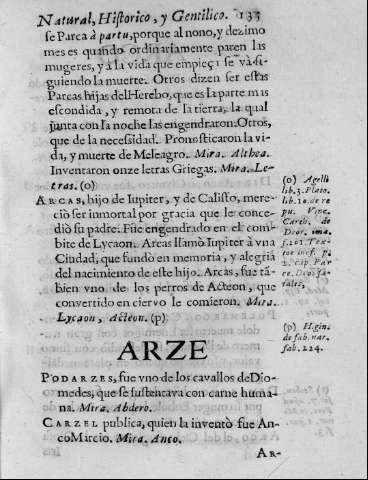 Natural, Historico, y Gentilico. 133
se Parca à partu, porque al nono, y dezimo
mes es quando ordinariamente paren las
mugeres, y à la vida que empieça se và si-
guiendo la muerte. Otros dizen ser estas
Parcas hijas del Herebo, que es la parte mas
escondida, y remota de la tierra, la qual
junta con la noche las engendraron. Otros,
que de la necessidad. Pronosticaron la vi-
da, y muerte de Meleagro. Mira. Althea.
Inventaron onze letras Griegas. Mira. Le-
tras. (o)
ARCAS, hijo de Iupiter, y de Calisto, mere-
ciò ser inmortal por gracia que le conce-
diò su padre. Fue engendrado en el com-
bite de Lycaon. Arcas llamò Iupiter à vna
Ciudad, que fundò en memoria, y alegria
del nacimiento de este hijo. Arcas, fue tã-
bien vno de los perros de Acteon, que
convertido en ciervo le comieron. Mira.
Lycaon, Acteon. (p)
(o) Agelli
lib. 3. Plato.
lib. 10. de re
pu. Vinc.
Carth. de
Deor. ima.
f. 201. Tex-
tor in of. p.
2. cap. Par
ce. Deos fa-
tales,
(p) Higin.
de fab. nar.
fab. 224.
ARZE
PODARZES, fue vno de los cavallos de Dio-
medes, que se sustentava con carne huma-
na. Mira. Abdero.
CARZEL publica, quien la inventò fue An-
co Marcio. Mira. Anco.
AR-